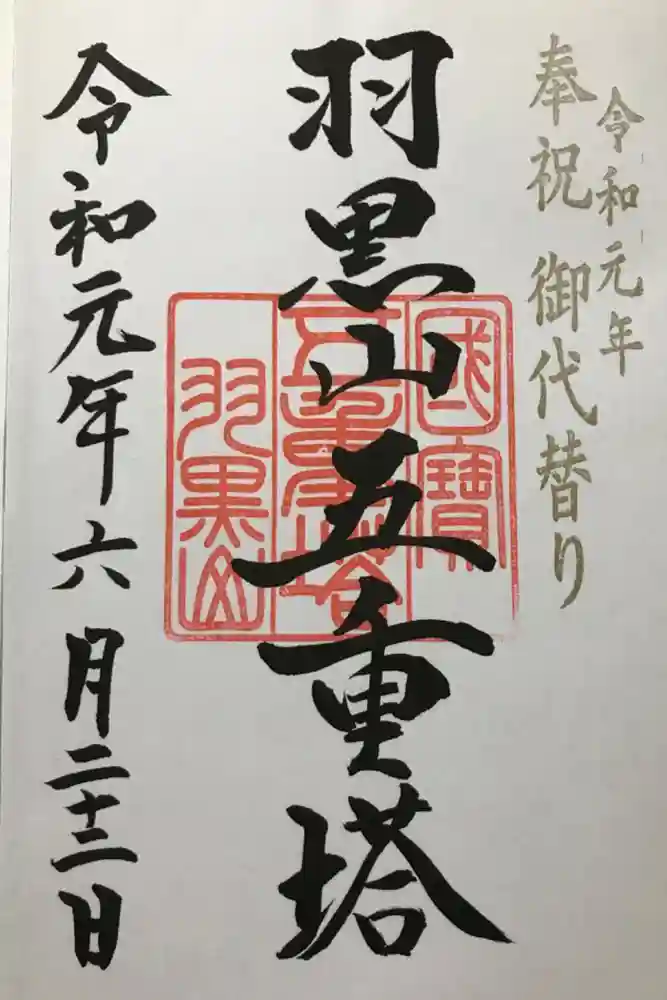 令和元年
奉祝 御代替り
羽黒山五重塔
國寶
五重塔
羽黒山
令和元年六月二十二日